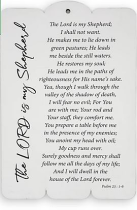 The LORD is my Shepherd
The Lord is my Shepherd;
I shall not want.
He makes me to lie down in
green pastures; He leads
me beside the still waters.
He restores my soul;
He leads me in the paths of
righteousness for His name's sake.
Yea, though I walk through the
valley of the shadow of death,
I will fear no evil, For You
are with me; Your rod and
Your staff, they comfort me.
You prepare a table before me
in the presence of my enemies;
You anoint my head with oil;
My cup runs over.
Surely goodness and mercy shall
follow me all the days of my life;
And I will dwell in the
house of the Lord forever.
Psalm 23 : 1-6